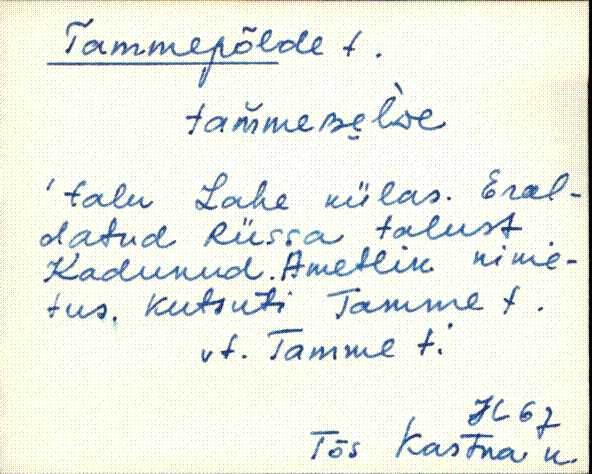 Tammepõlde t.
tam̆meʙe̮l̀ᴅe
'talu Lahe külas. Eral-
datud Rüssa talust
Kadunud. Ametlik nime-
tus. Kutsuti Tamme t.
vt. Tamme t.'
67
Tõs Kastna k.